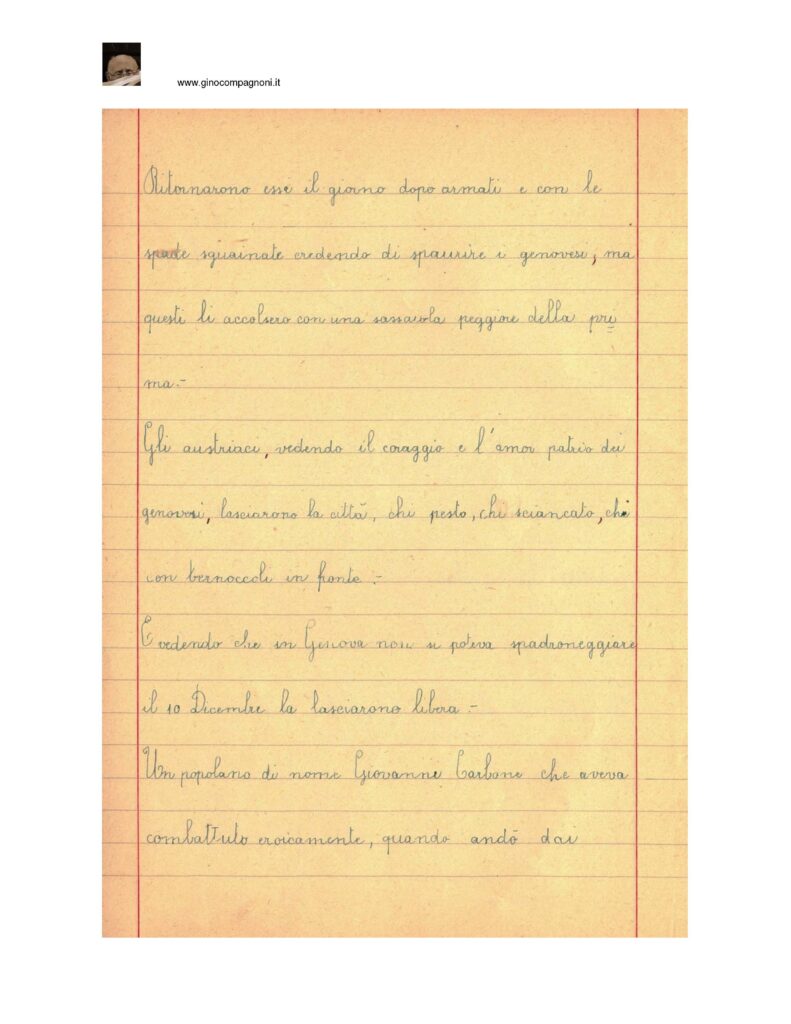 www.ginocompagnoni.it
Ritornarono essi il giorno dopo armati e con le
spade sguainate credendo di spaurire i genovesi, ma
questi li accolsero con una sassaiola peggiore della pri
ma.-
Gli austriaci, vedendo il coraggio e l'amor patrio dei
genovesi, lasciarono la città, chi pesto, chi sciancato, chi
con bernoccoli in fronte.-
E vedendo che in Genova non si poteva spadroneggiare
il 10 Dicembre la lasciarono libera.-
Un popolano di nome Giovanni Carbone che aveva
combattuto eroicamente, quando andò dai